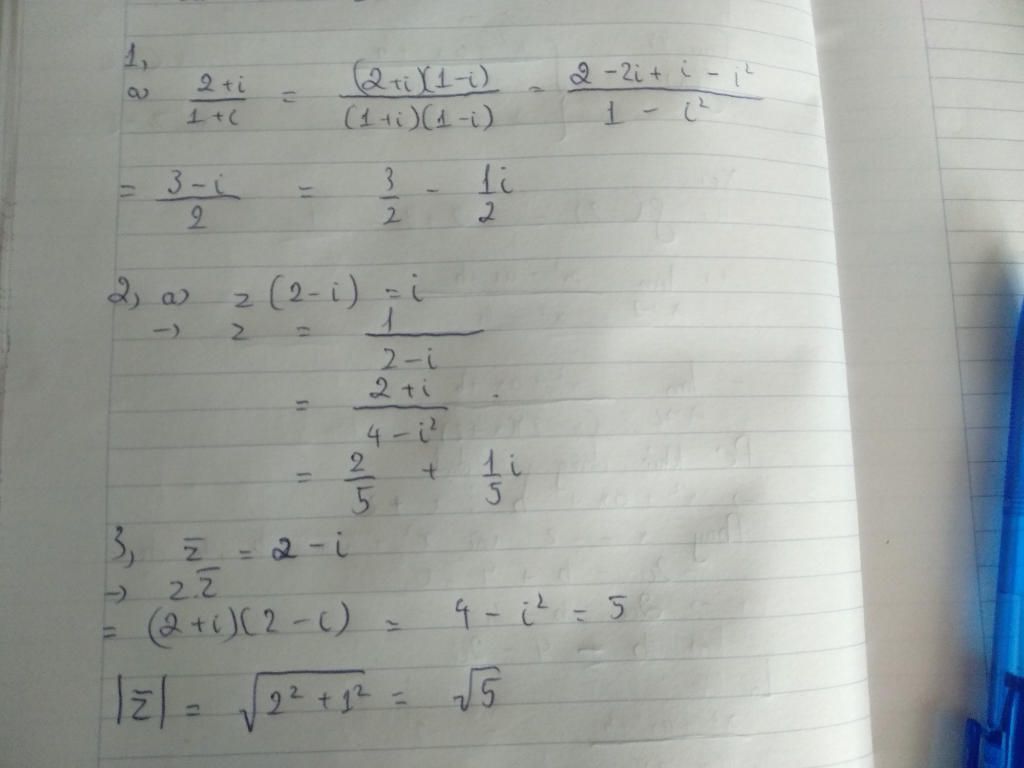 1,
a) \frac{2+i}{1+i} = \frac{(2+i)(1-i)}{(1+i)(1-i)} = \frac{2-2i+i-i^2}{1-i^2}
= \frac{3-i}{2} = \frac{3}{2} - \frac{1i}{2}
2, a) z(2-i) = i
→ z = \frac{1}{2-i}
= \frac{2+i}{4-i^2}
= \frac{2}{5} + \frac{1}{5}i
3, \bar{z} = 2-i
→ z.\bar{z}
= (2+i)(2-i) = 4-i^2 = 5
|\bar{z}| = \sqrt{2^2+1^2} = \sqrt{5}